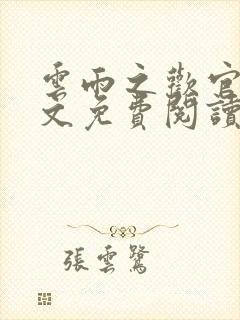 雲雨之歡官
文免費閱讀
張雲鷺